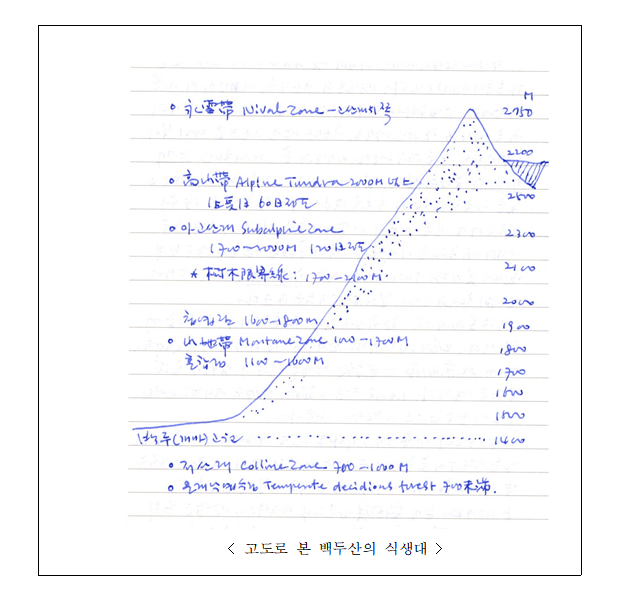 M
• 永雪帶 Nival Zone - 고산지대 쪽
2750
2200
• 高山帶 Alpine Tundra 2000M 以上
2500
60日 정도
• 아고산대 Subalpine Zone
2300
1700~2000M 120日 정도
* 樹木限界線: 1700-2100M.
2100
2000
침엽림 1600-1800m
1900
• 山地帶 Montane Zone 1000-1700M
1800
혼합림 1100-1600M
1700
1600
1600
백두(개마)고원
1400
• 저산대 Colline Zone 700-1000M
• 온대낙엽수림 Temperate decidious forest 700未滿.
< 고도로 본 백두산의 식생대 >